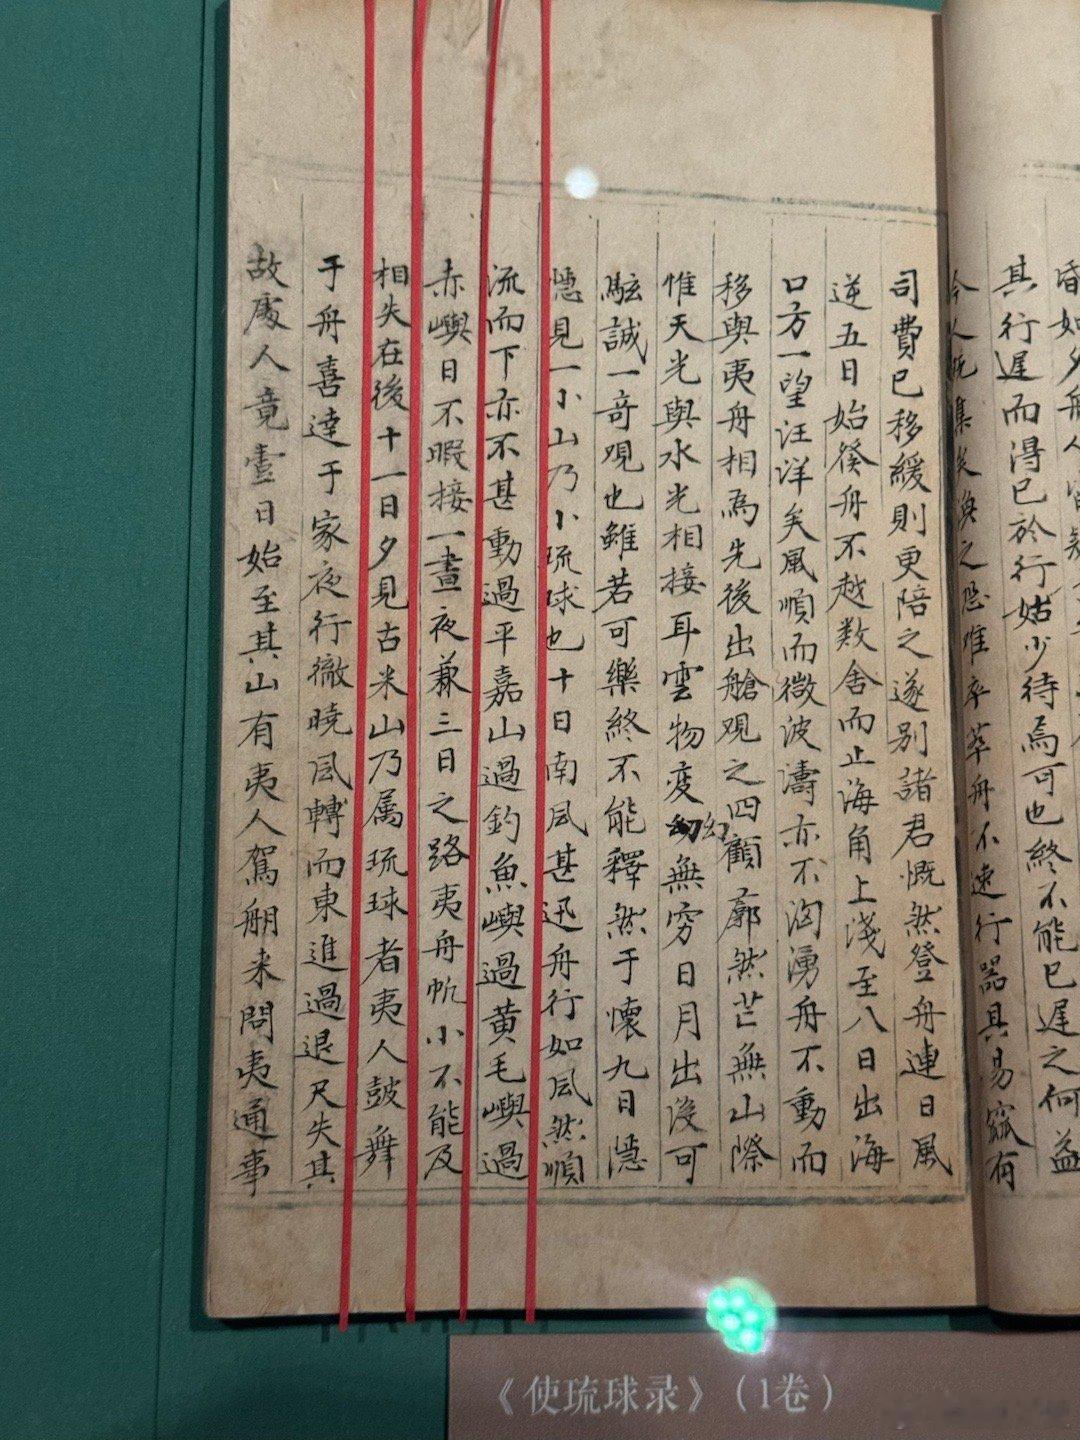 昏如夕舟人皆疑
其行遲而得已於行姑少待焉可也終不能已遲之何益
今人既集矣渙之恐唯卒萃舟不速行器具易窳有
司費已移緩則更陪之遂别諸君慨然登舟連日風
逆五日始發舟不越数舍而止海角上淺至八日出海
口方一望汪洋矣風順而微波濤亦不洶湧舟不動而
移與夷舟相為先後出艙观之四顧廓然茫無山際
惟天光與水光相接耳雲物変幻幻無窮日月出沒可
駭誠一奇观也雖若可樂終不能釋然于懷九日隱
隱見一小山乃小琉球也十日南風甚迅舟行如風然順
流而下亦不甚動過平嘉山過釣魚嶼過黃毛嶼過
赤嶼日不暇接一晝夜兼三日之路夷舟帆小不能及
相失在後十一日夕見古米山乃属琉球者夷人鼓舞
于舟喜達于家夜行徹曉風轉而東進過退尺失其
故處人竟壹日始至其山有夷人駕舢来問夷通事
《使琉球录》（1卷）